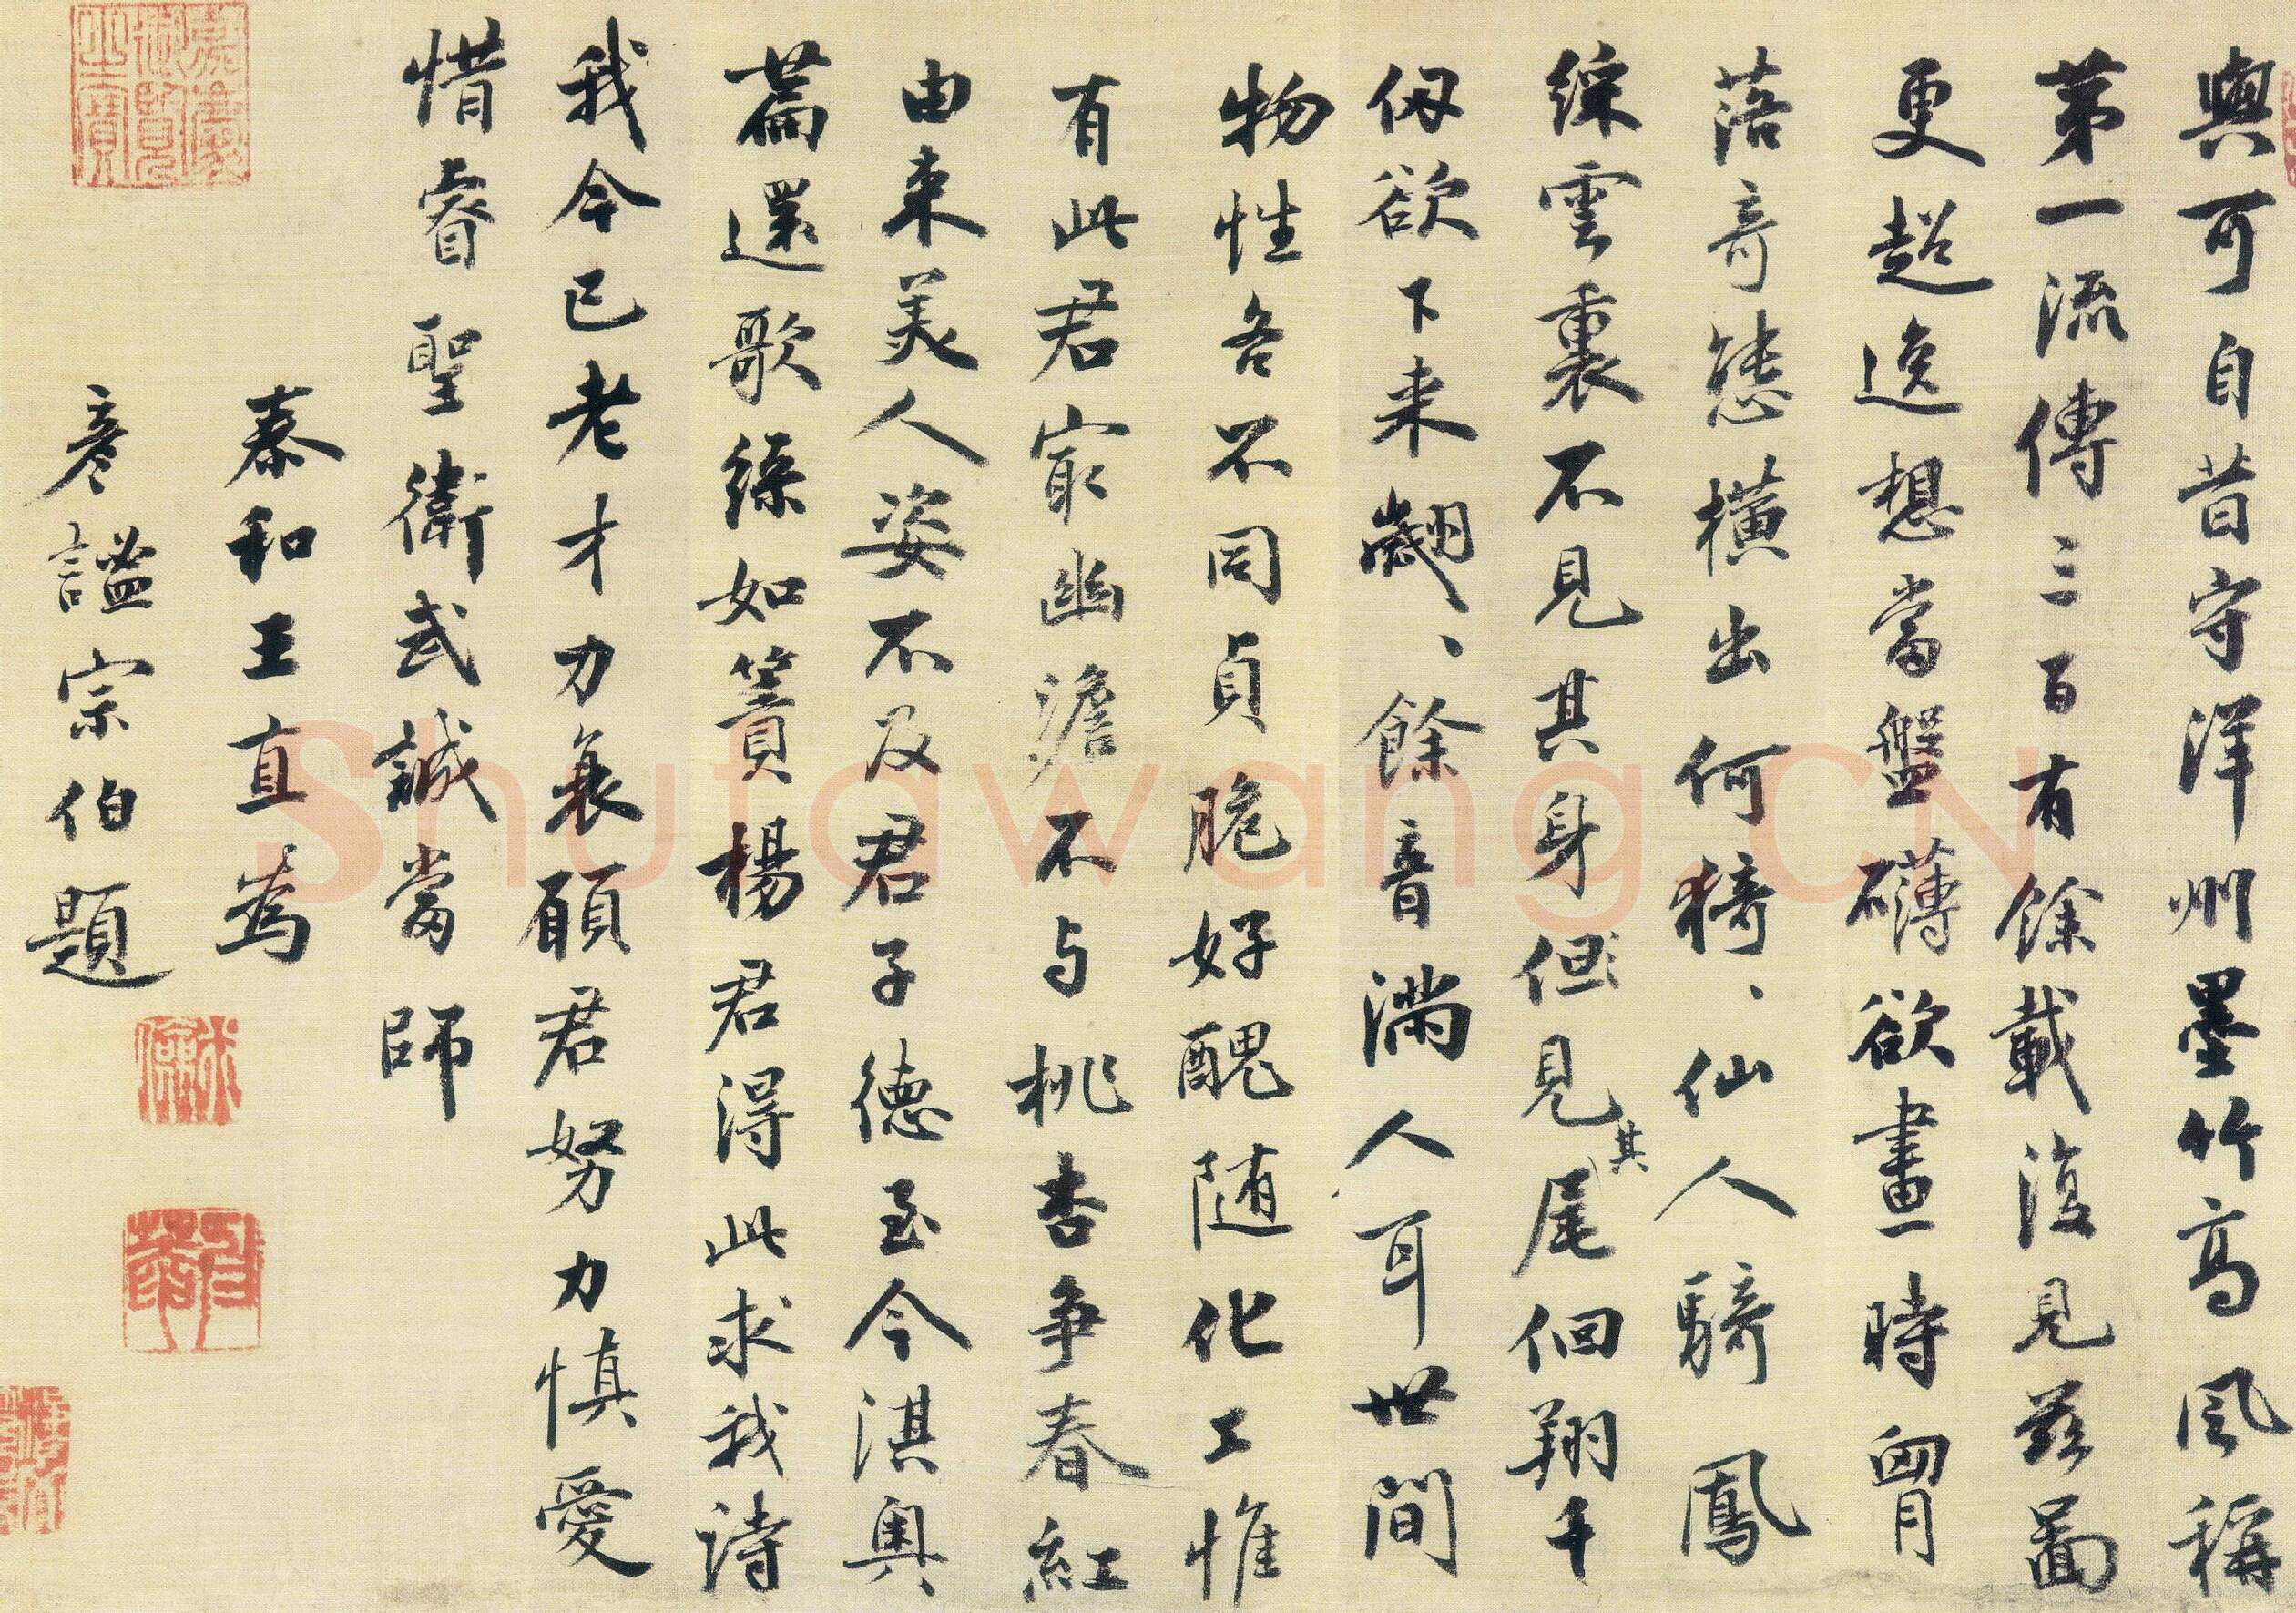 與可自昔守洋州墨竹高風稱
苐一流傳三百有餘載復見茲啚
更超逸想當盤礴欲畫時胷
落奇態橫出何猗、仙人騎鳳
綵雲裏不見其身但見其尾佪翔千
仭欲下來翽、餘音滿人耳世間
物性各不同貞脆好醜随化工惟
有此君寂幽澹不与桃杏争春紅
由来美人姿不及君子德至今淇奥
篇還歌綠如簀楊君得此求我诗
我今已老才力衰願君努力慎愛
惜睿聖衛武誠當師
泰和王直為
彥謐宗伯題
嘉慶御覽之寶
Shufawang.CN